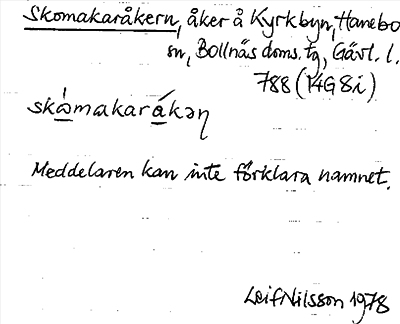 Skomakaråkern, åker å Kyrkbyn, Hanebo
sn, Bollnäs doms. tg, Gävl. l.
788 (14G8i)
skòmakarákəɳ
Meddelaren kan inte förklara namnet.
Leif Nilsson 1978